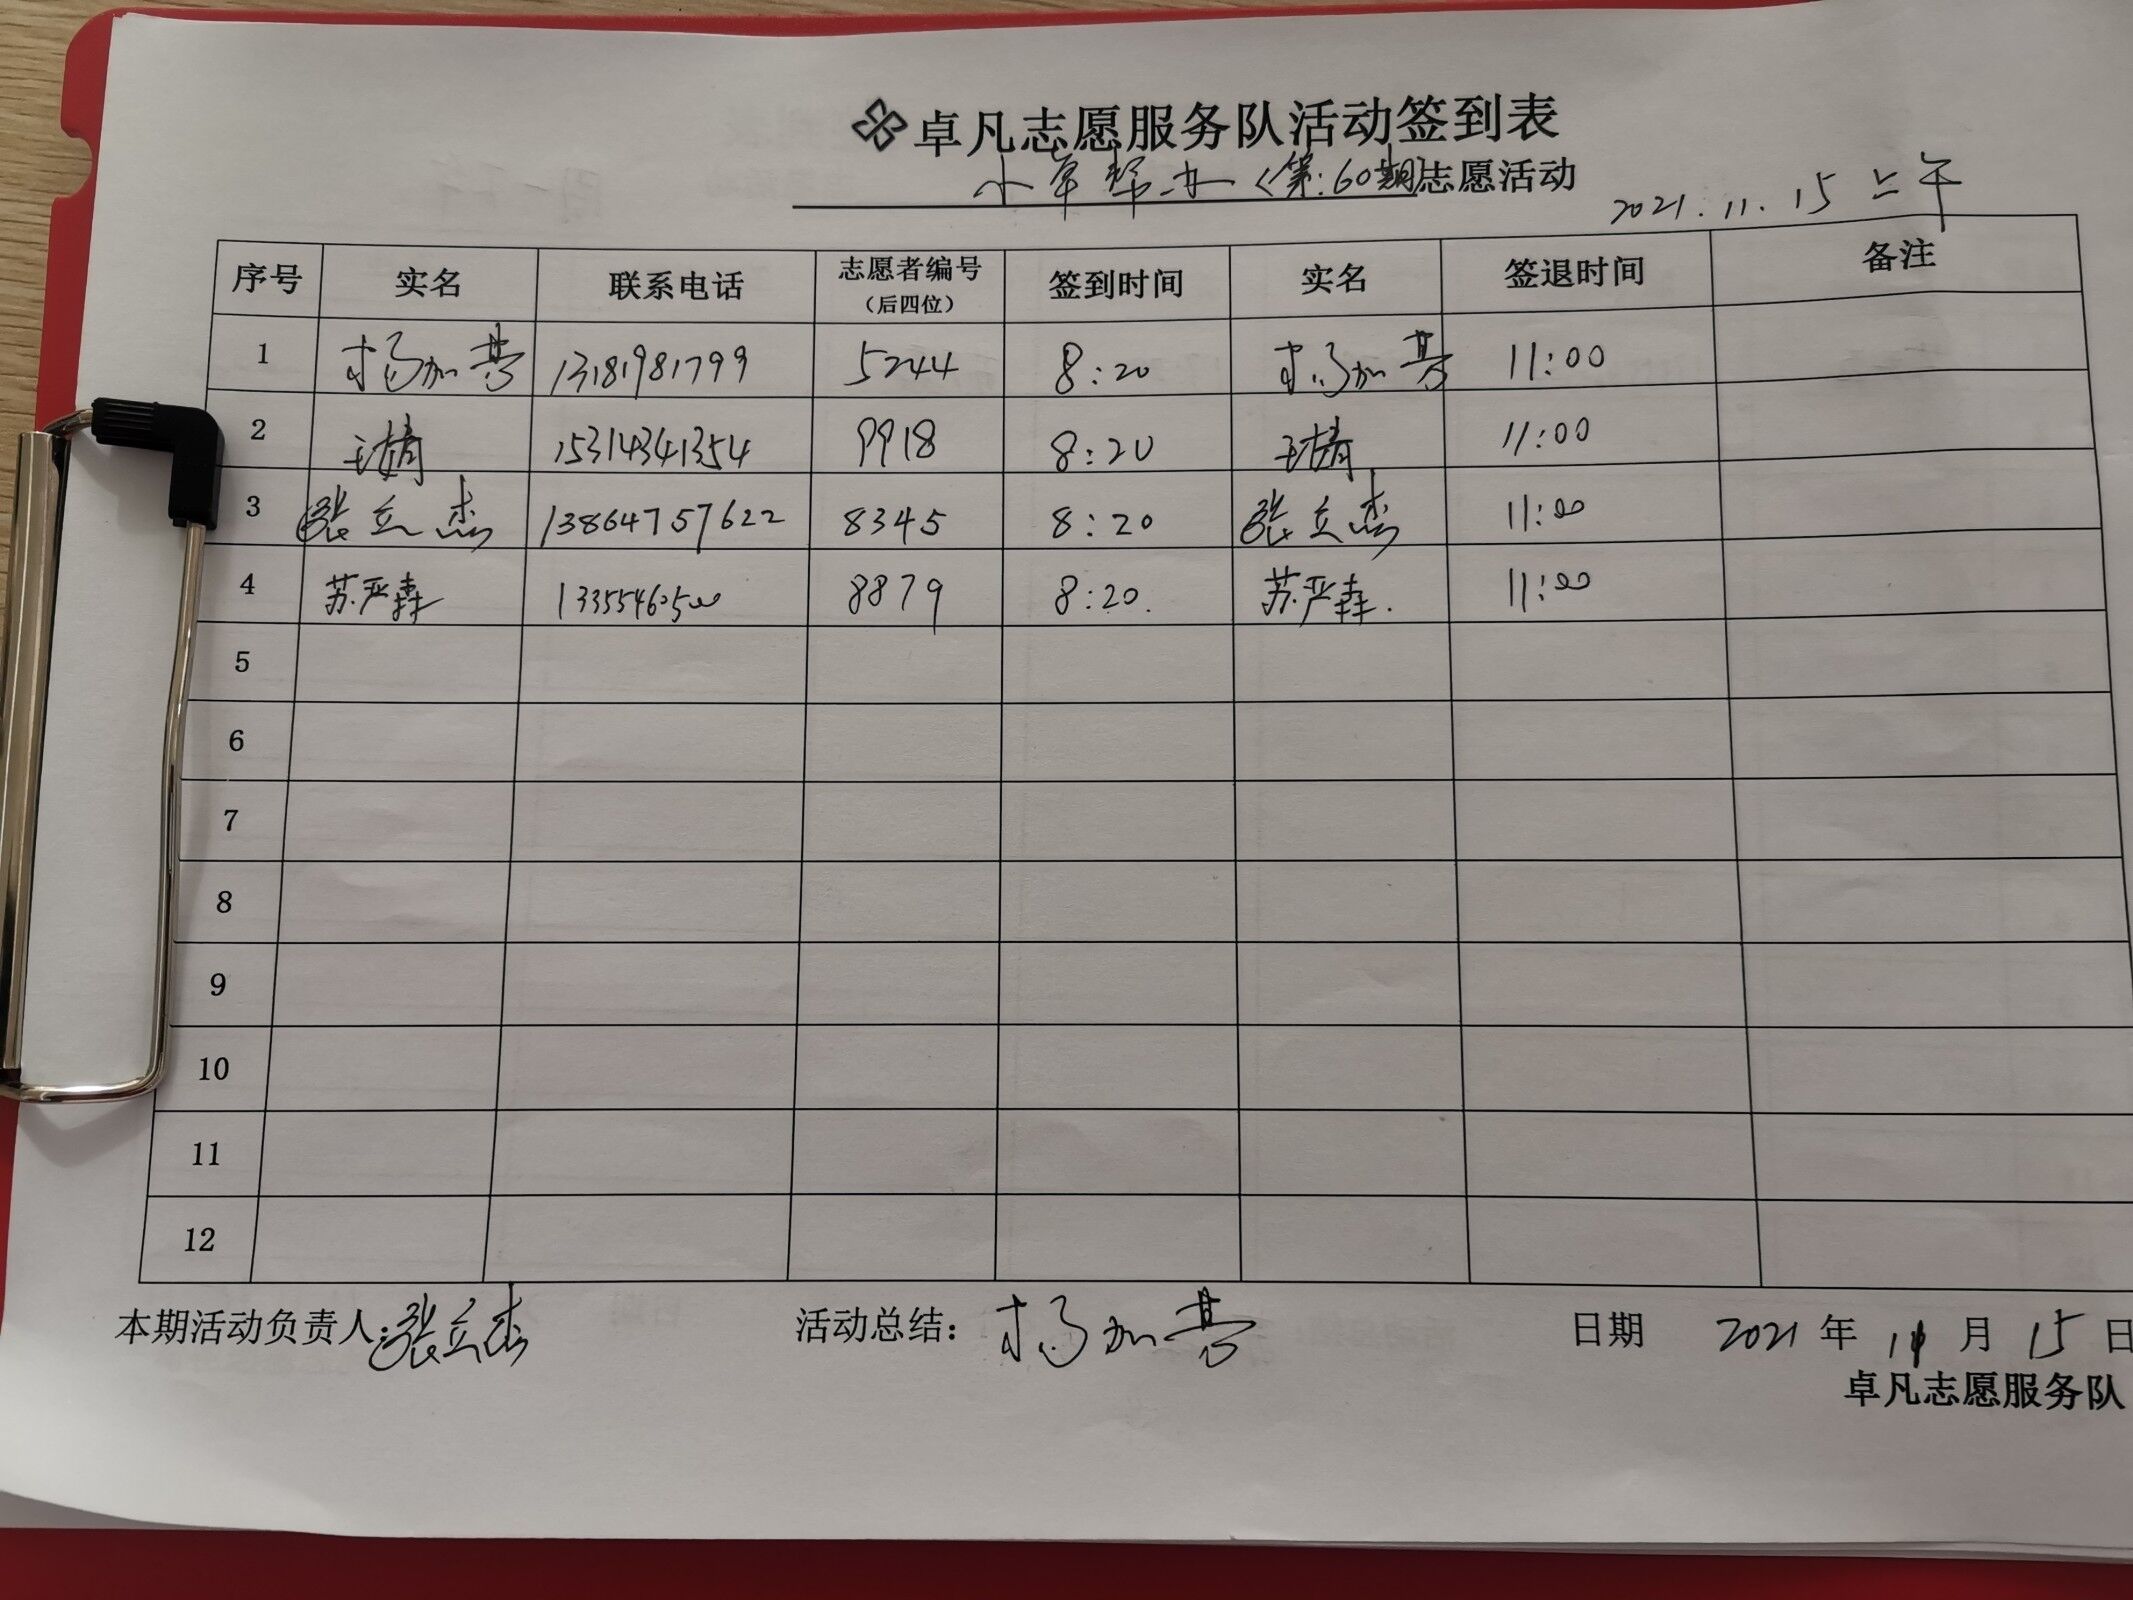 卓凡志愿服务队活动签到表
小卓帮办(第:60期)志愿活动
2021.11.15上午
序号 实名 联系电话 志愿者编号(后四位) 签到时间 实名 签退时间 备注
1 杨加营 13181981799 5244 8:20 杨加营 11:00
2 王婧 15314341354 9918 8:20 王婧 11:00
3 张立杰 13864757622 8345 8:20 张立杰 11:00
4 苏严森 13355460500 8879 8:20. 苏严森. 11:00
5
6
7
8
9
10
11
12
本期活动负责人:张立杰 活动总结:杨加营 日期 2021年11月15日
卓凡志愿服务队